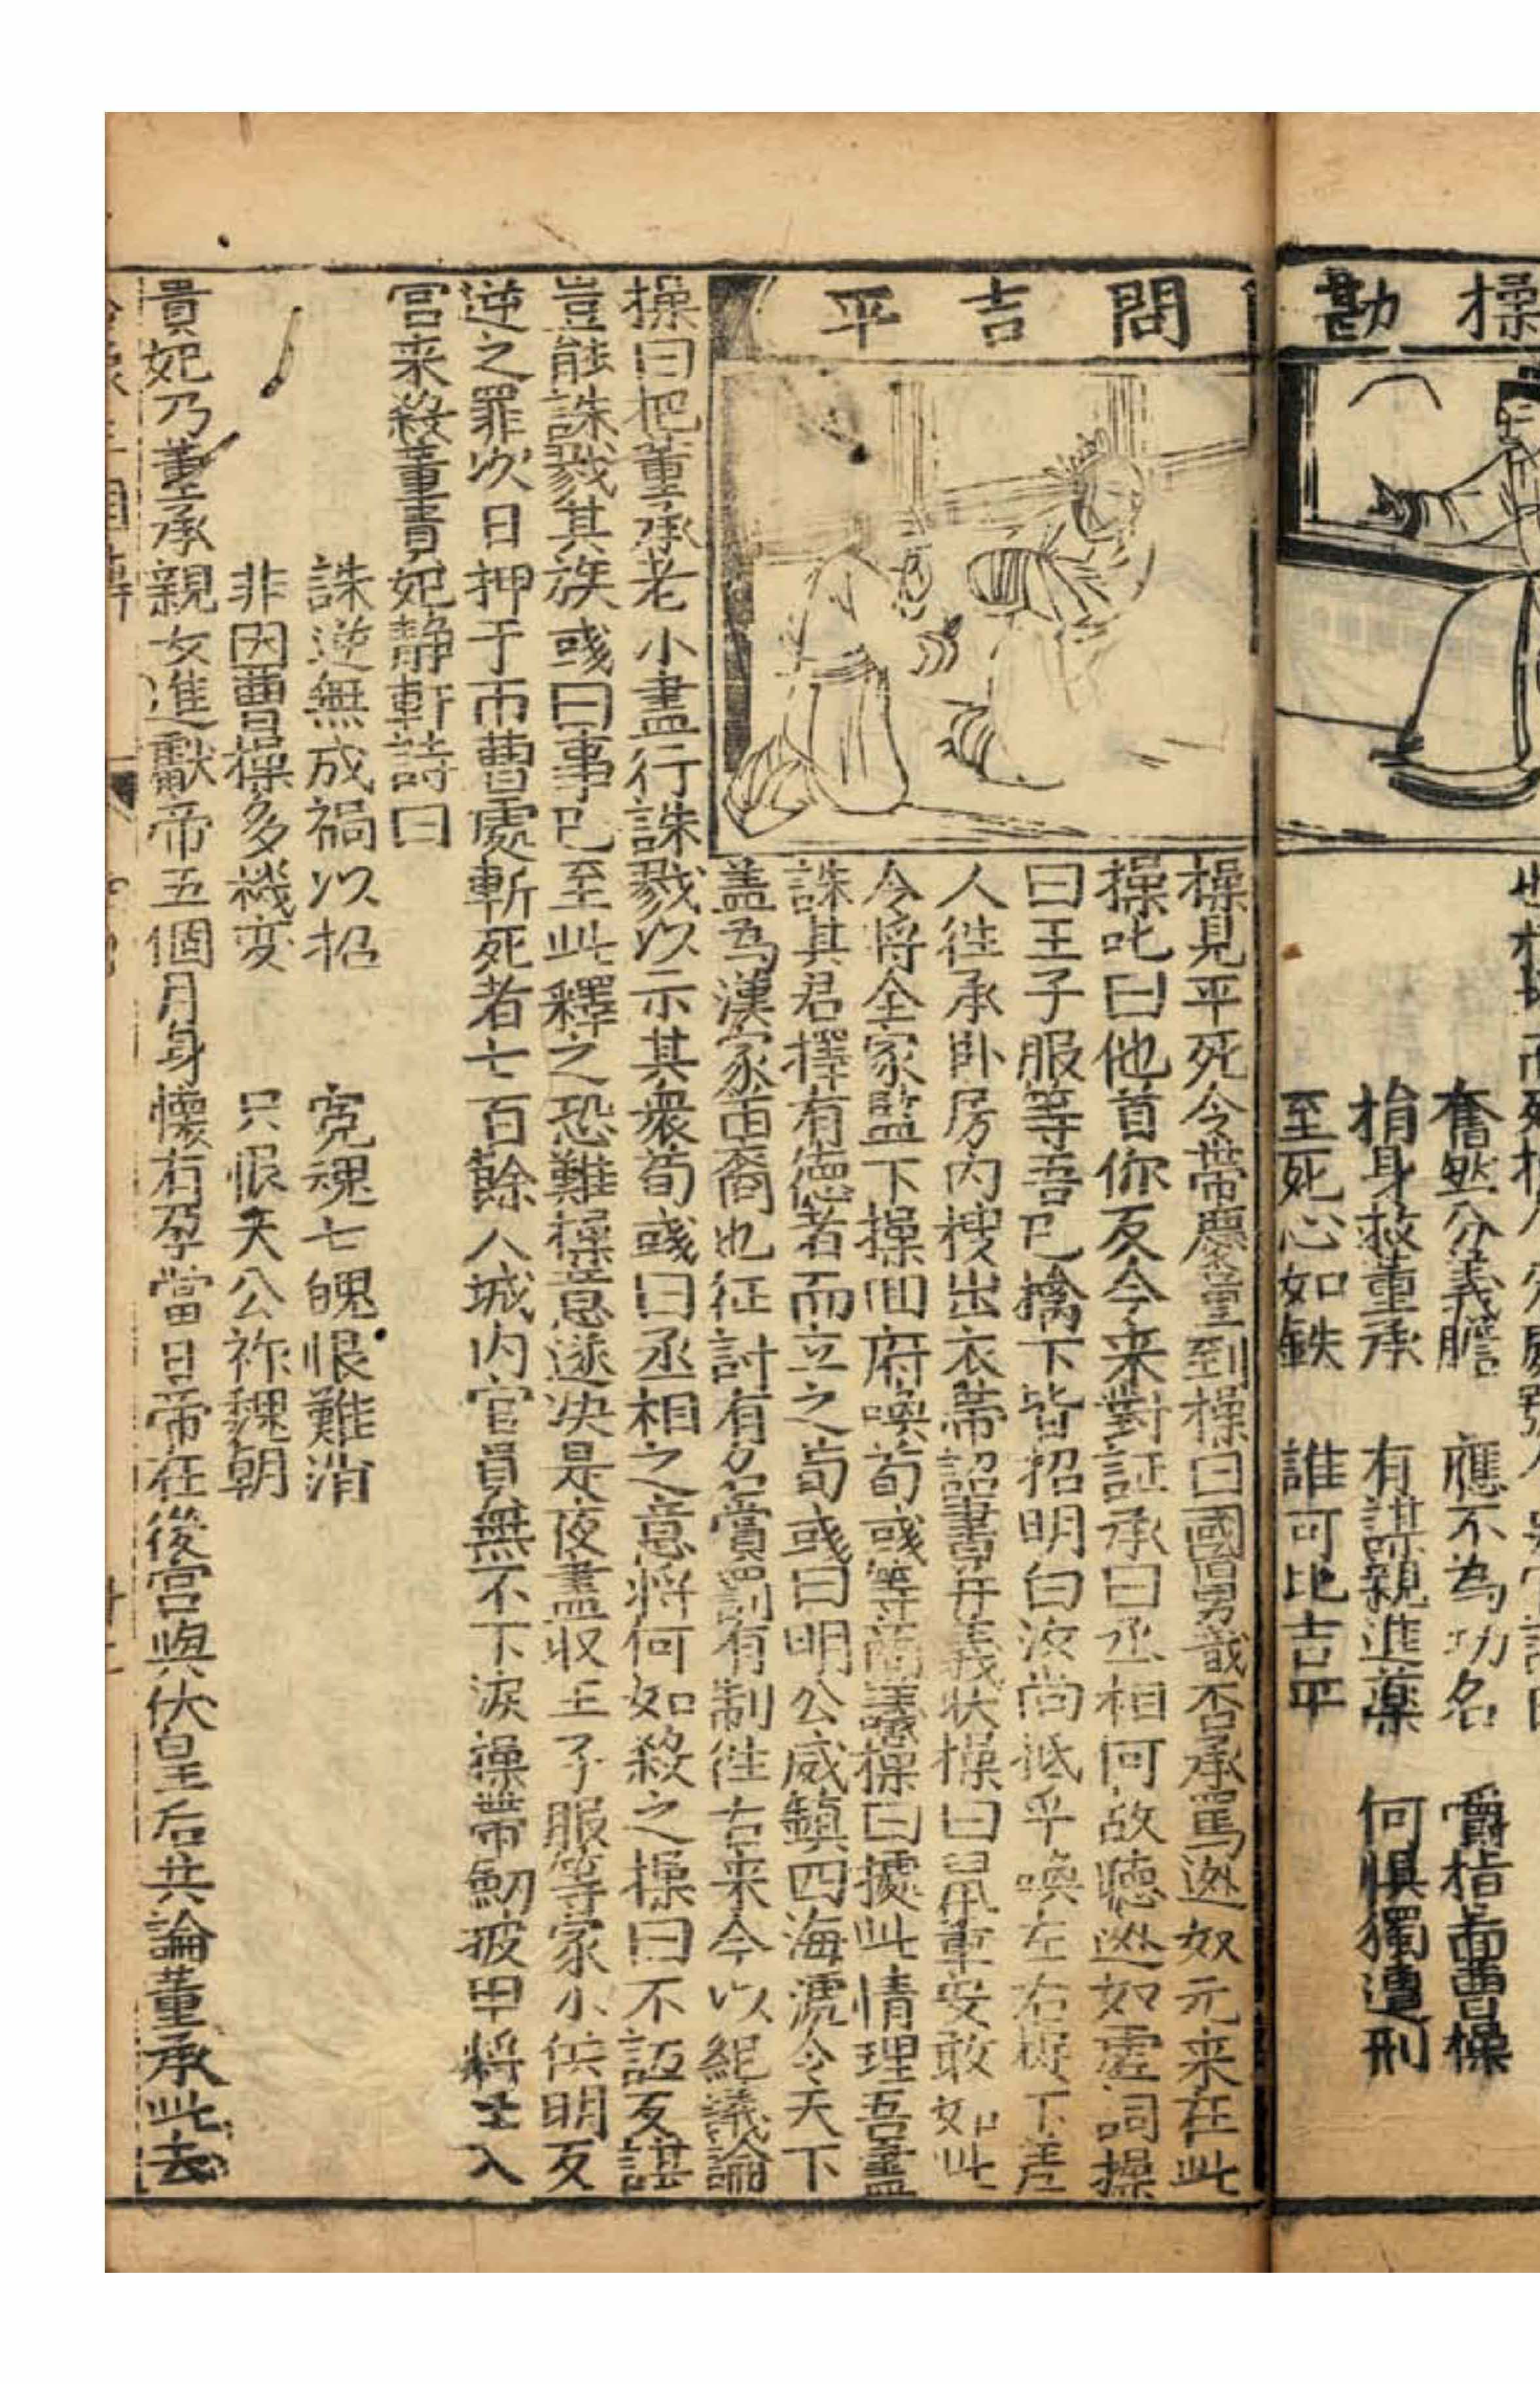 操勘
問吉平
奮然分義膽　應不為功名　嚼指啚曹操
捐身救董承　有謀親進薬　何惧獨遭刑
至死心如鉄　誰可比吉平
操見平死令帶慶童到操曰國舅識否承罵迯奴元来在此
操叱曰他首你反今来對証承曰丞相何故聽迯奴虛詞操
曰王子服等吾已擒下皆招明白汝尚抵乎喚左右拿下差
人徃承卧房内搜出衣帶詔書并義狀操曰鼠軰安敢如此
令將全家監下操囬府喚荀彧等商議操曰據此情理吾盡
誅其君擇有德者而立之荀彧曰明公威鎮四海號令天下
盖為漢家苗裔也征討有名賞罰有制徃古来今以紀議論
操曰把董承老小盡行誅戮以示其衆荀彧曰丞相之意將何如殺之操曰不誣反謀
豈能誅戮其族彧曰事已至此釋之恐難操意遂决是夜盡収王子服等家小供明反
逆之罪次日押于市曹處斬死者七百餘人城内官員無不下淚操帶劒披甲將士入
宫来殺董貴妃靜軒詩曰
誅逆無成禍以招　寃魂七魄恨難消
非因曹操多機变　只恨天公祚魏朝
貴妃乃董承親女進獻帝五個月身懷有孕當日帝在後宫與伏皇后共論董承此去